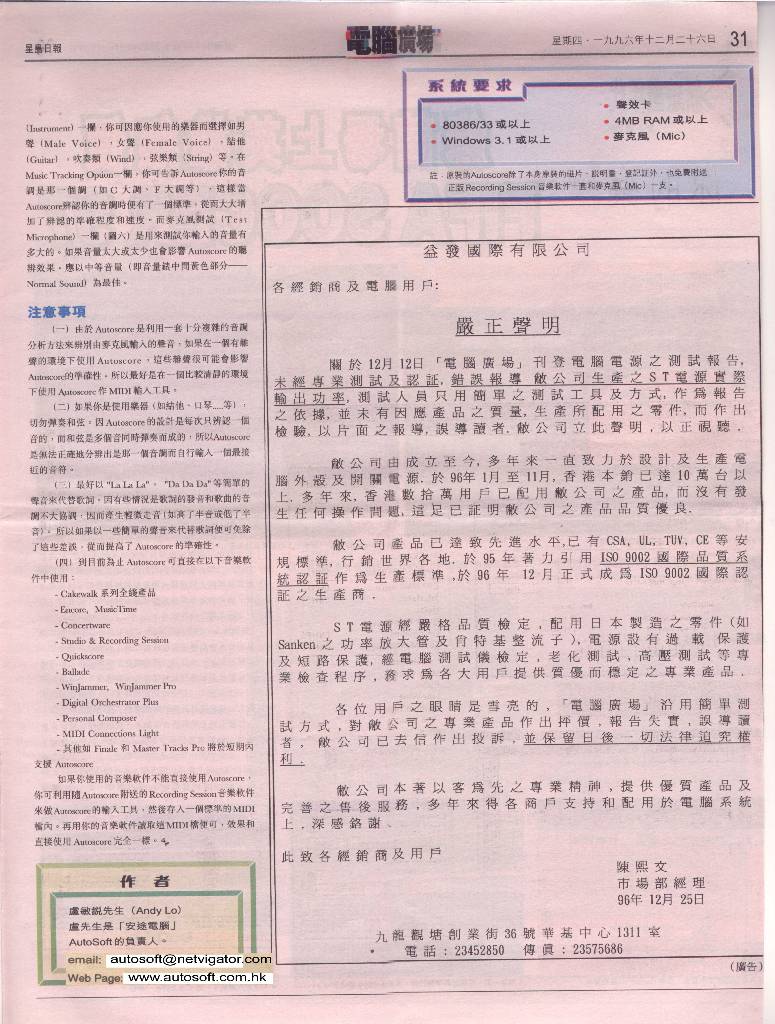 星島日報
電腦廣場
星期四．一九九六年十二月二十六日 31
系統要求
• 80386/33 或以上
• Windows 3.1 或以上
• 聲效卡
• 4MB RAM 或以上
• 麥克風（Mic）
註．原裝的Autoscore除了本身原裝的磁片、說明書、登記証外，也免費附送
正版 Recording Session 音樂軟件一套和麥克風（Mic）一支。
(Instrument) 一欄，你可因應你使用的樂器而選擇如男
聲 (Male Voice)，女聲 (Female Voice)，結他
(Guitar)，吹奏類 (Wind)，弦樂類 (String) 等。在
Music Tracking Option一欄，你可告訴Autoscore你的音
調是那一個調（如C大調、F大調等），這樣當
Autoscore辨認你的音調時便有了一個標準，從而大大增
加了辨認的準確程度和速度。而麥克風測試 (Test
Microphone) 一欄（圖六）是用來測試你輸入的音量有
多大的。如果音量太大或太少也會影響 Autoscore 的聽
辨效果。應以中等音量（即音量錶中間黃色部分——
Normal Sound）為最佳。
注意事項
（一）由於 Autoscore 是利用一套十分複雜的音調
分析方法來辨別由麥克風輸入的聲音，如果在一個有雜
聲的環境下使用 Autoscore，這些雜聲很可能會影響
Autoscore的準確性。所以最好是在一個比較清靜的環境
下使用 Autoscore 作 MIDI 輸入工具。
（二）如果你是使用樂器（如結他、口琴.....等），
切勿彈奏和弦，因 Autoscore 的設計是每次只辨認一個
音的，而和弦是多個音同時彈奏而成的，所以Autoscore
是無法正確地分辨出是那一個音調而自行輸入一個最接
近的音符。
（三）最好以 "La La La"， "Da Da Da" 等簡單的
聲音來代替歌詞。因有些情況是歌詞的發音和歌曲的音
調不大協調，因而產生輕微走音（如高了半音或低了半
音）。所以如果以一些簡單的聲音來代替歌詞便可免除
了這些差誤，從而提高了 Autoscore 的準確性。
（四）到目前為止 Autoscore 可直接在以下音樂軟
件中使用：
- Cakewalk 系列全綫產品
- Encore, MusicTime
- Concertware
- Studio & Recording Session
- Quickscore
- Ballade
- WinJammer, WinJammer Pro
- Digital Orchestrator Plus
- Personal Composer
- MIDI Connections Light
- 其他如 Finale 和 Master Tracks Pro 將於短期內
支援 Autoscore
如果你使用的音樂軟件不能直接使用Autoscore，
你可利用隨Autoscore附送的Recording Session音樂軟件
來做Autoscore的輸入工具，然後存入一個標準的MIDI
檔內。再用你的音樂軟件讀取這MIDI檔便可，效果和
直接使用 Autoscore 完全一樣。
作者
盧敏銳先生（Andy Lo）
盧先生是「安達電腦」
AutoSoft的負責人。
email: autosoft@netvigator.com
Web Page: www.autosoft.com.hk
益發國際有限公司
各經銷商及電腦用戶:
嚴正聲明
關於12月12日「電腦廣場」刊登電腦電源之測試報告,
未經專業測試及認証, 錯誤報導 敝公司生產之ST電源實際
輸出功率, 測試人員只用簡單之測試工具及方式, 作為報告
之依據, 並未有因應產品之質量, 生產所配用之零件, 而作出
檢驗, 以片面之報導, 誤導讀者, 敝公司立此聲明, 以正視聽.
敝公司由成立至今, 多年來一直致力於設計及生產電
腦外殼及開關電源. 於96年1月至11月, 香港本銷已達10萬台以
上. 多年來, 香港數拾萬用戶已配用敝公司之產品, 而沒有發
生任何操作問題, 這足已証明敝公司之產品品質優良.
敝公司產品已達致先進水平, 已有 CSA, UL, TUV, CE 等安
規標準, 行銷世界各地. 於95年著力引用 ISO 9002國際品質系
統認証作為生產標準, 於96年 12月正式成為 ISO 9002國際認
証之生產商.
ST電源經嚴格品質檢定, 配用日本製造之零件(如
Sanken之功率放大管及肖特基整流子), 電源設有過載保護
及短路保護, 經電腦測試儀檢定, 老化測試, 高壓測試等專
業檢查程序, 務求為各大用戶提供質優而穩定之專業產品.
各位用戶之眼睛是雪亮的, 「電腦廣場」沿用簡單測
試方式, 對敝公司之專業產品作出抨價. 報告失實, 誤導讀
者, 敝公司已去信作出投訴, 並保留日後一切法律追究權
利.
敝公司本著以客為先之專業精神, 提供優質產品及
完善之售後服務, 多年來得各商戶支持和配用於電腦系統
上. 深感銘謝.
此致各經銷商及用戶
陳熙文
市場部經理
96年12月25日
九龍觀塘創業街36號華基中心1311室
• 電話: 23452850 傳真: 23575686
(廣告)